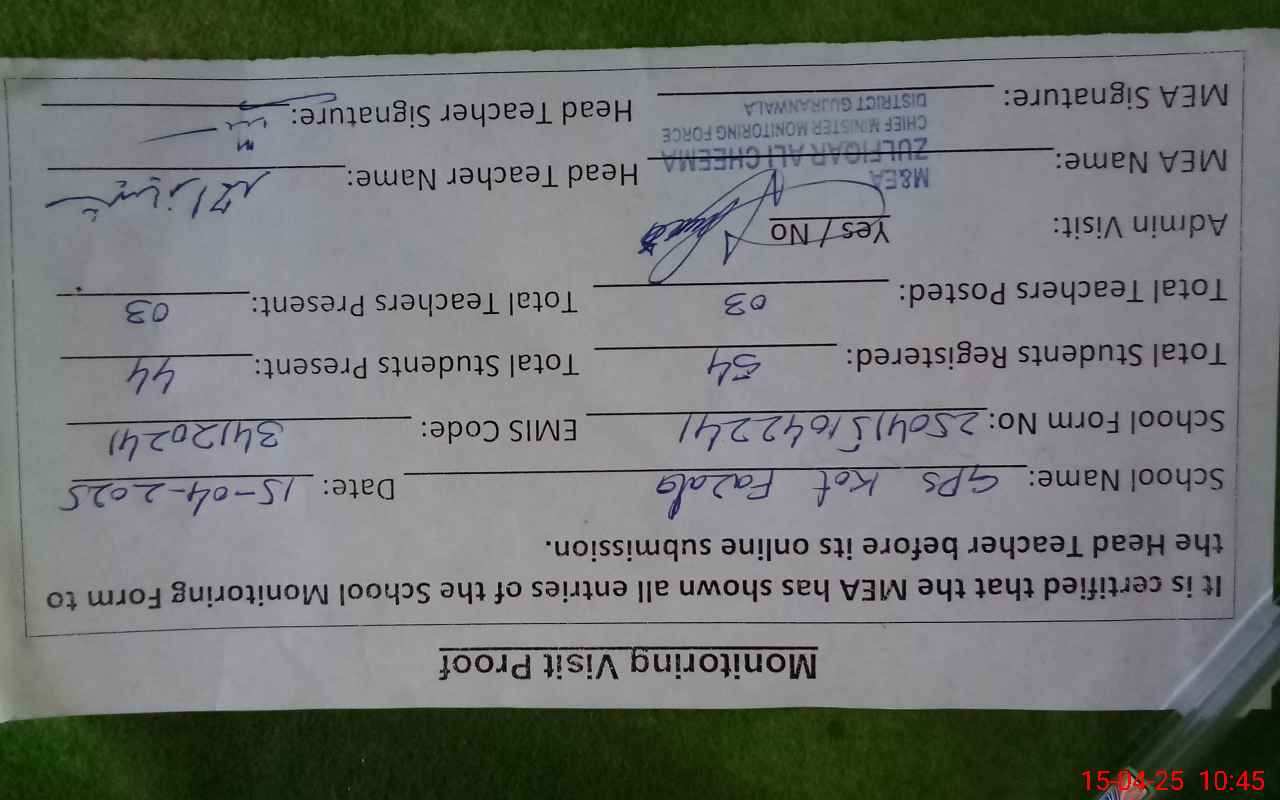 Monitoring Visit Proof
It is certified that the MEA has shown all entries of the School Monitoring Form to
the Head Teacher before its online submission.
School Name: GPS Kot Fazala Date: 15-04-2025
School Form No: 2504151042241 EMIS Code: 34120241
Total Students Registered: 54 Total Students Present: 44
Total Teachers Posted: 03 Total Teachers Present: 03
Admin Visit: Yes / No
M&EA
MEA Name: ZULFIQAR ALI CHEEMA Head Teacher Name:
CHIEF MINISTER MONITORING FORCE
DISTRICT GUJRANWALA
MEA Signature: Head Teacher Signature:
15-04-25 10:45